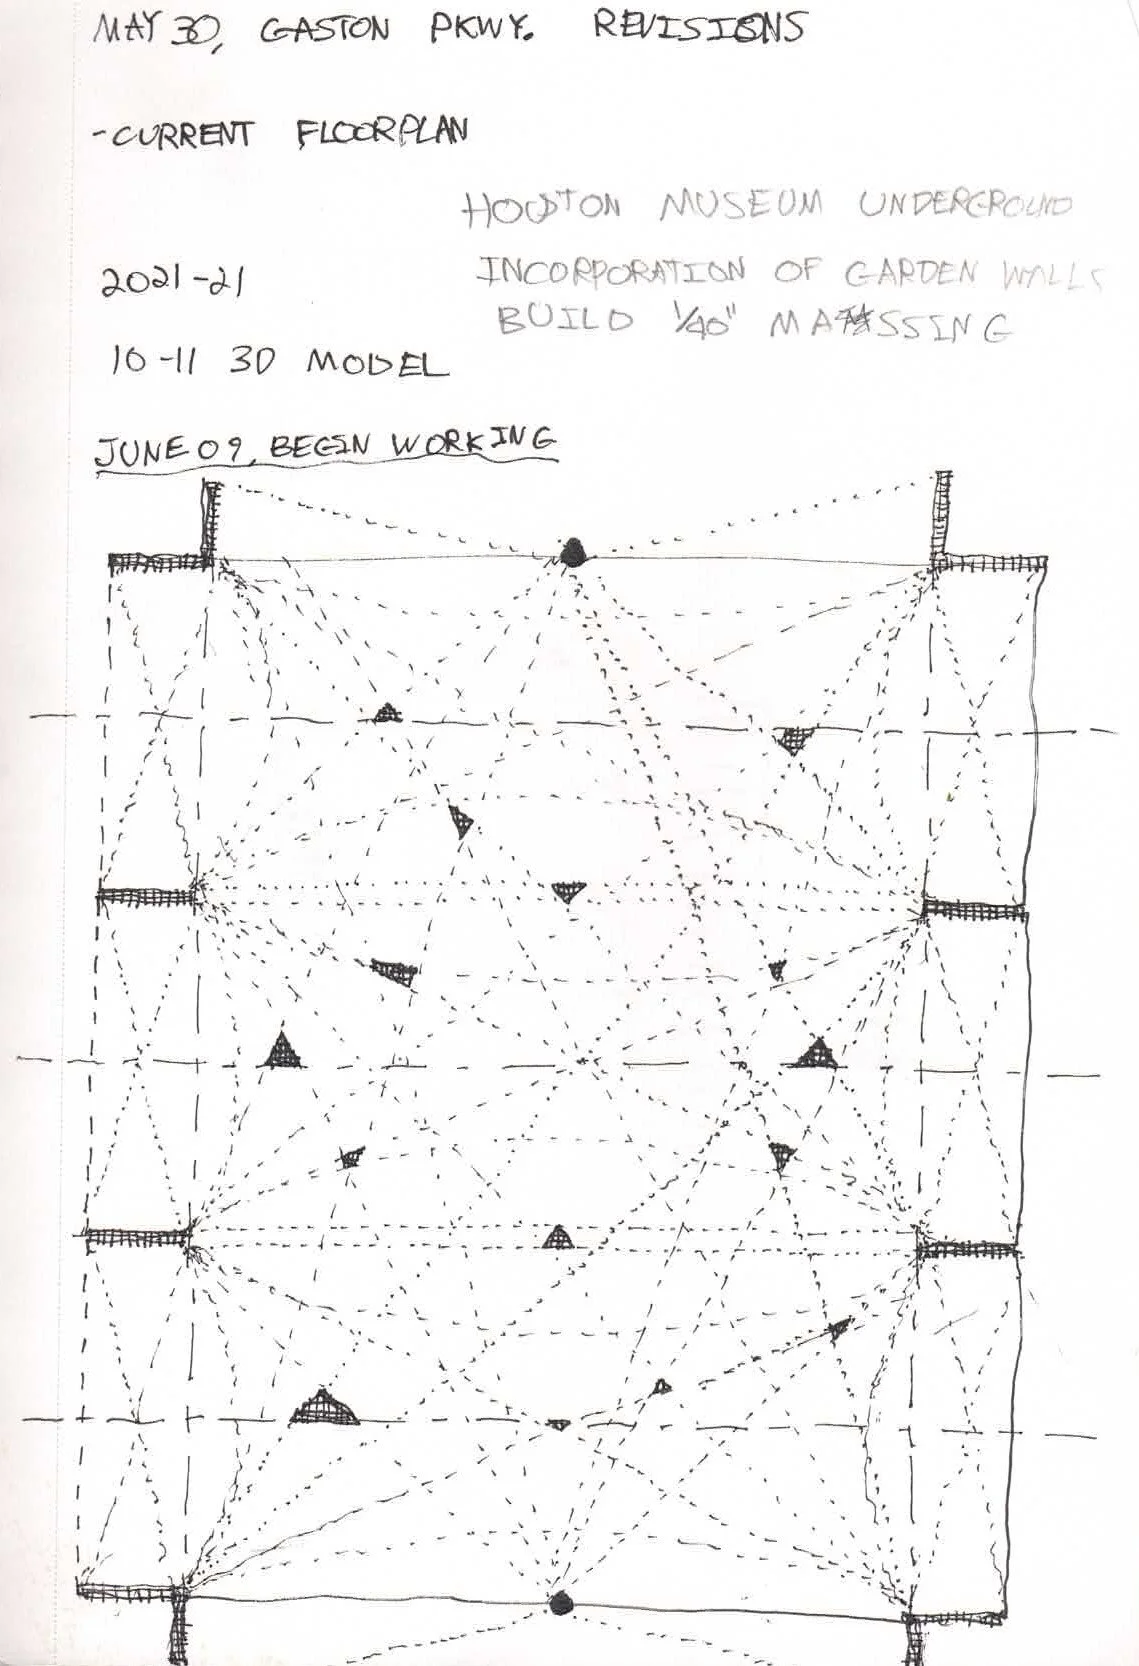 MAY 30, GASTON PKWY. REVISIONS
-CURRENT FLOORPLAN
HOUSTON MUSEUM UNDERGROUND
2021-21
INCORPORATION OF GARDEN WALLS
BUILD 1/40" MASSING
10-11 3D MODEL
JUNE 09, BEGIN WORKING